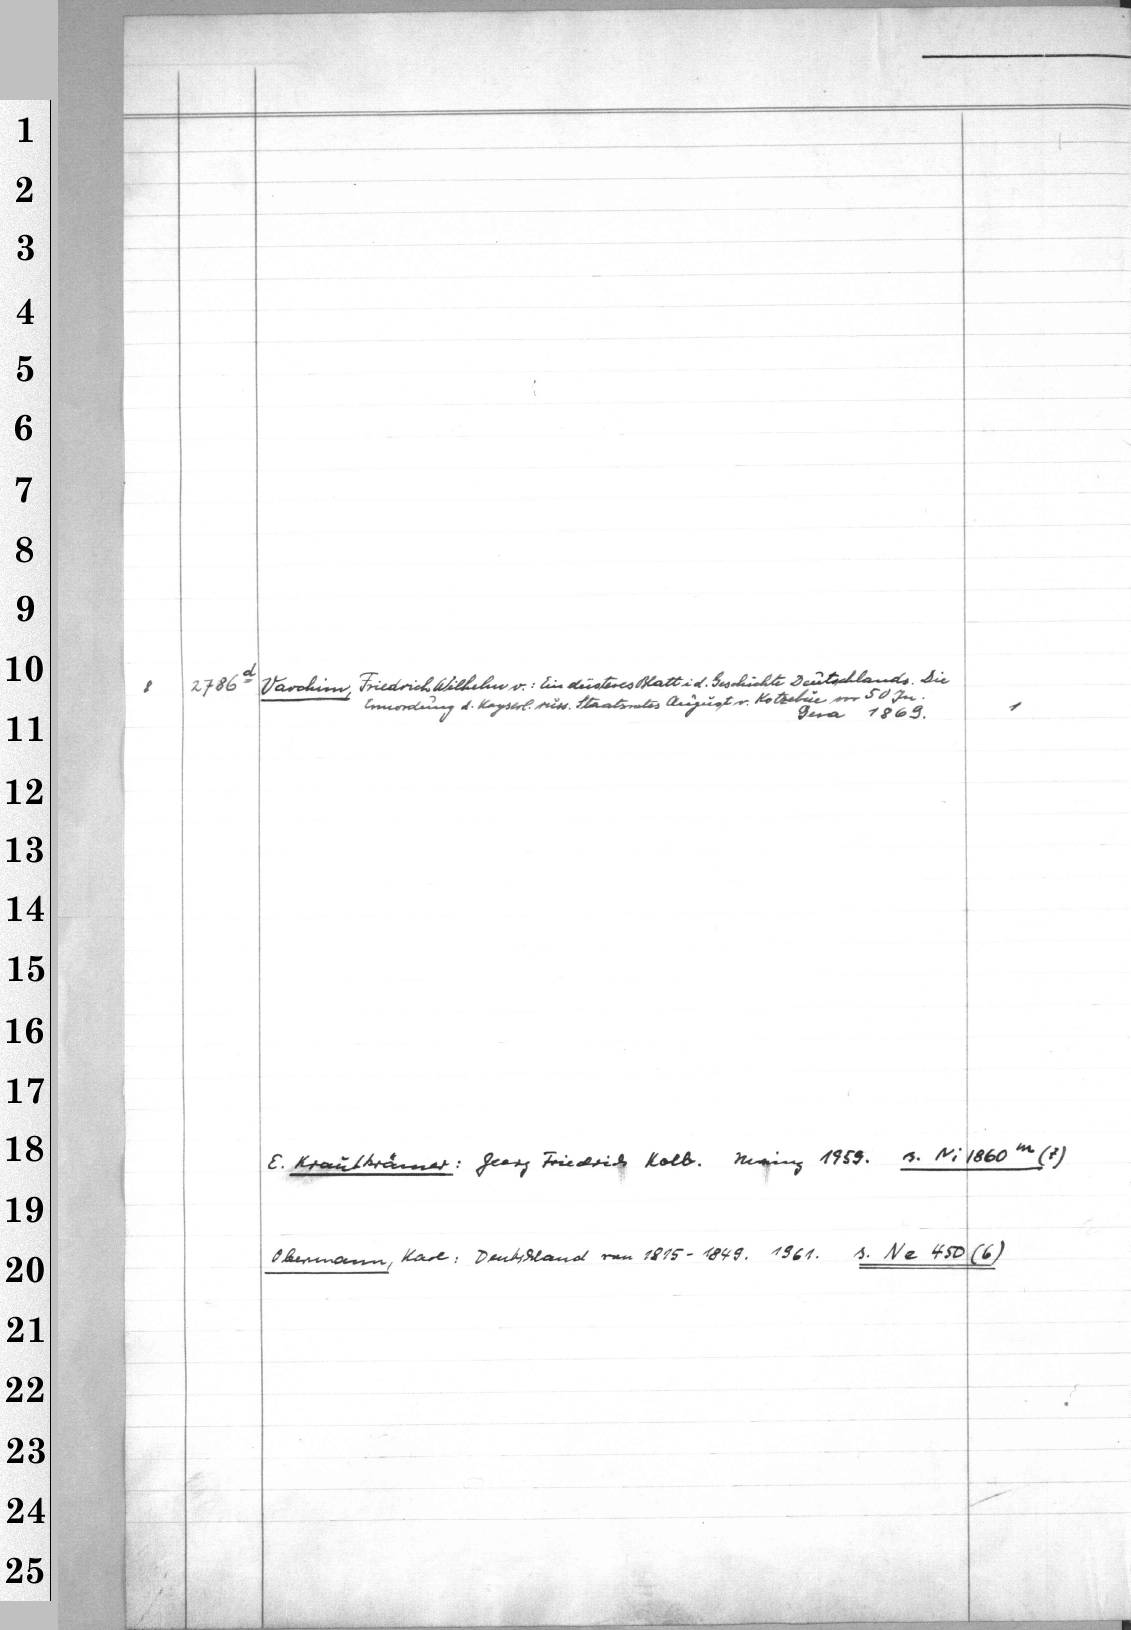 1
2
3
4
5
6
7
8
9
10
8 2786 d Varchim, Friedrich Wilhelm v.: Ein düsteres Blatt i. d. Geschichte Deutschlands. Die
Ermordung d. Kayserl. russ. Staatsrates August v. Kotzebue vor 50 Jn.
Gera 1869. 1
11
12
13
14
15
16
17
18
E. Krautkrämer: Georg Friedrich Kolb. Mainz 1959. s. Ni 1860 m (7)
19
Obermann, Karl: Deutschland von 1815-1849. 1961. s. Ne 450 (6)
20
21
22
23
24
25